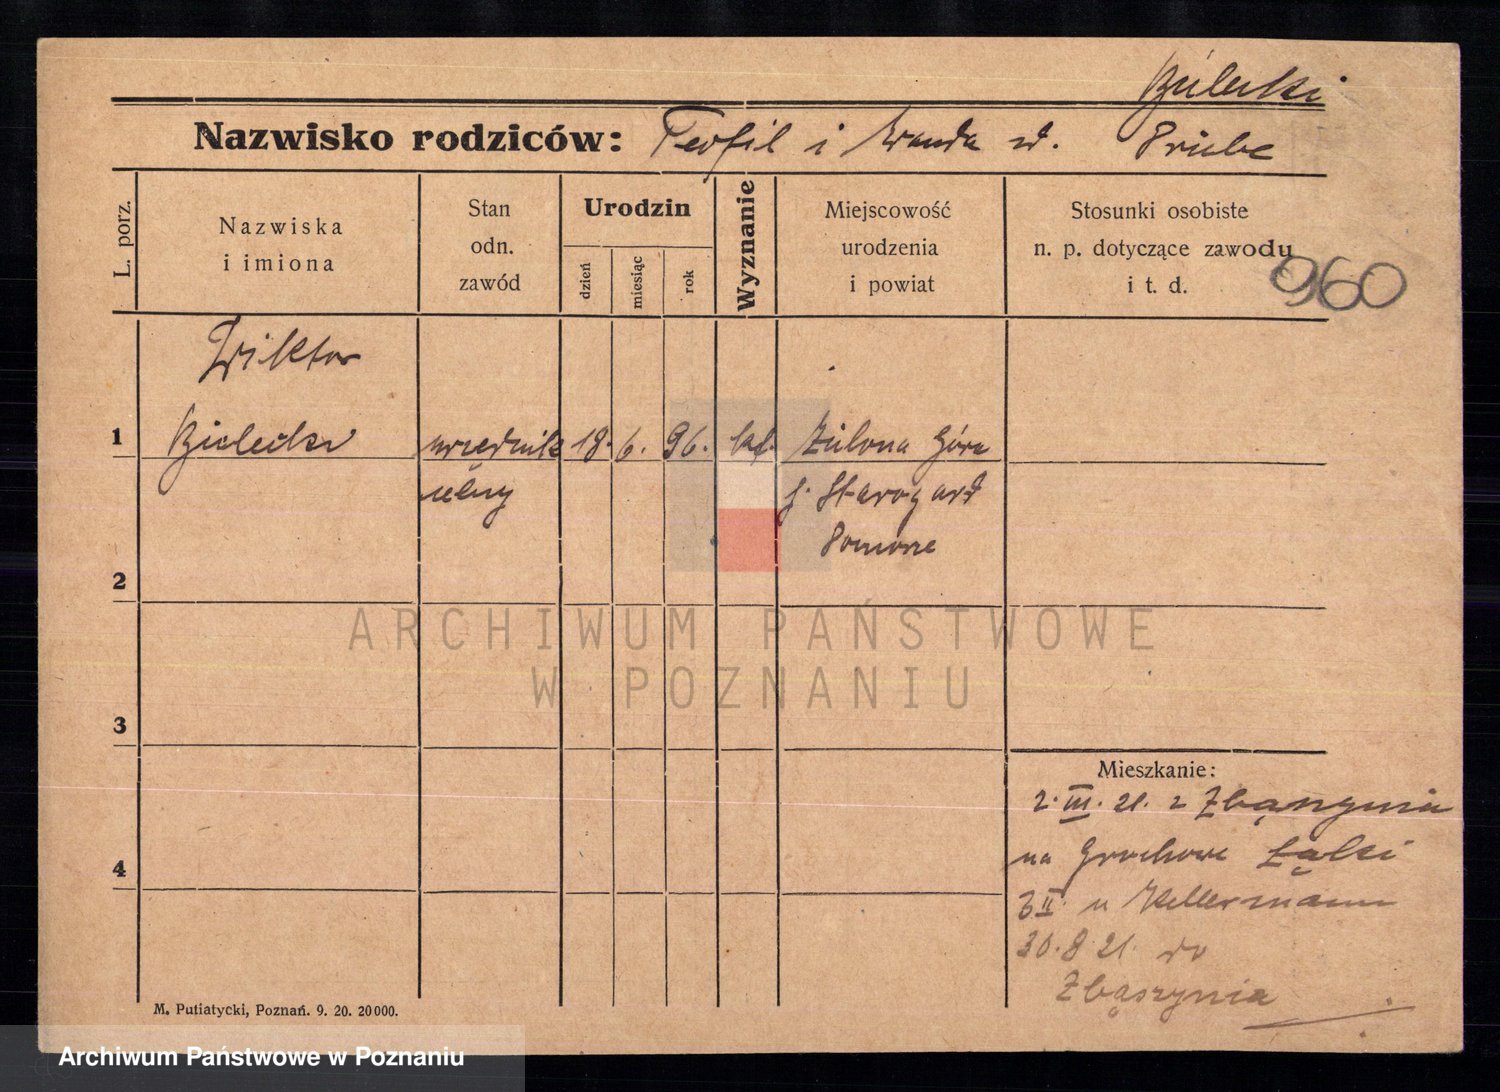 Bielecki
Nazwisko rodziców: Teofil i Wanda zd. Priebe
L. porz.
Nazwiska
i imiona
Stan
odn.
zawód
Urodzin
dzień
miesiąc
rok
Wyznanie
Miejscowość
urodzenia
i powiat
Stosunki osobiste
n. p. dotyczące zawodu
i t. d.
960
Wiktor
1 Bielecki urzędnik 18. 6. 96. kat. Zielona Góra
celny p. Starogard
Pomorze
2
ARCHIWUM PAŃSTWOWE
W POZNANIU
3
Mieszkanie:
2. III. 21. z Zbąszynia
4 na Grochowe Łąki
3 II u Kellermann
30. 8 21. do
Zbąszynia
M. Putiatycki, Poznań. 9. 20. 20000.
Archiwum Państwowe w Poznaniu